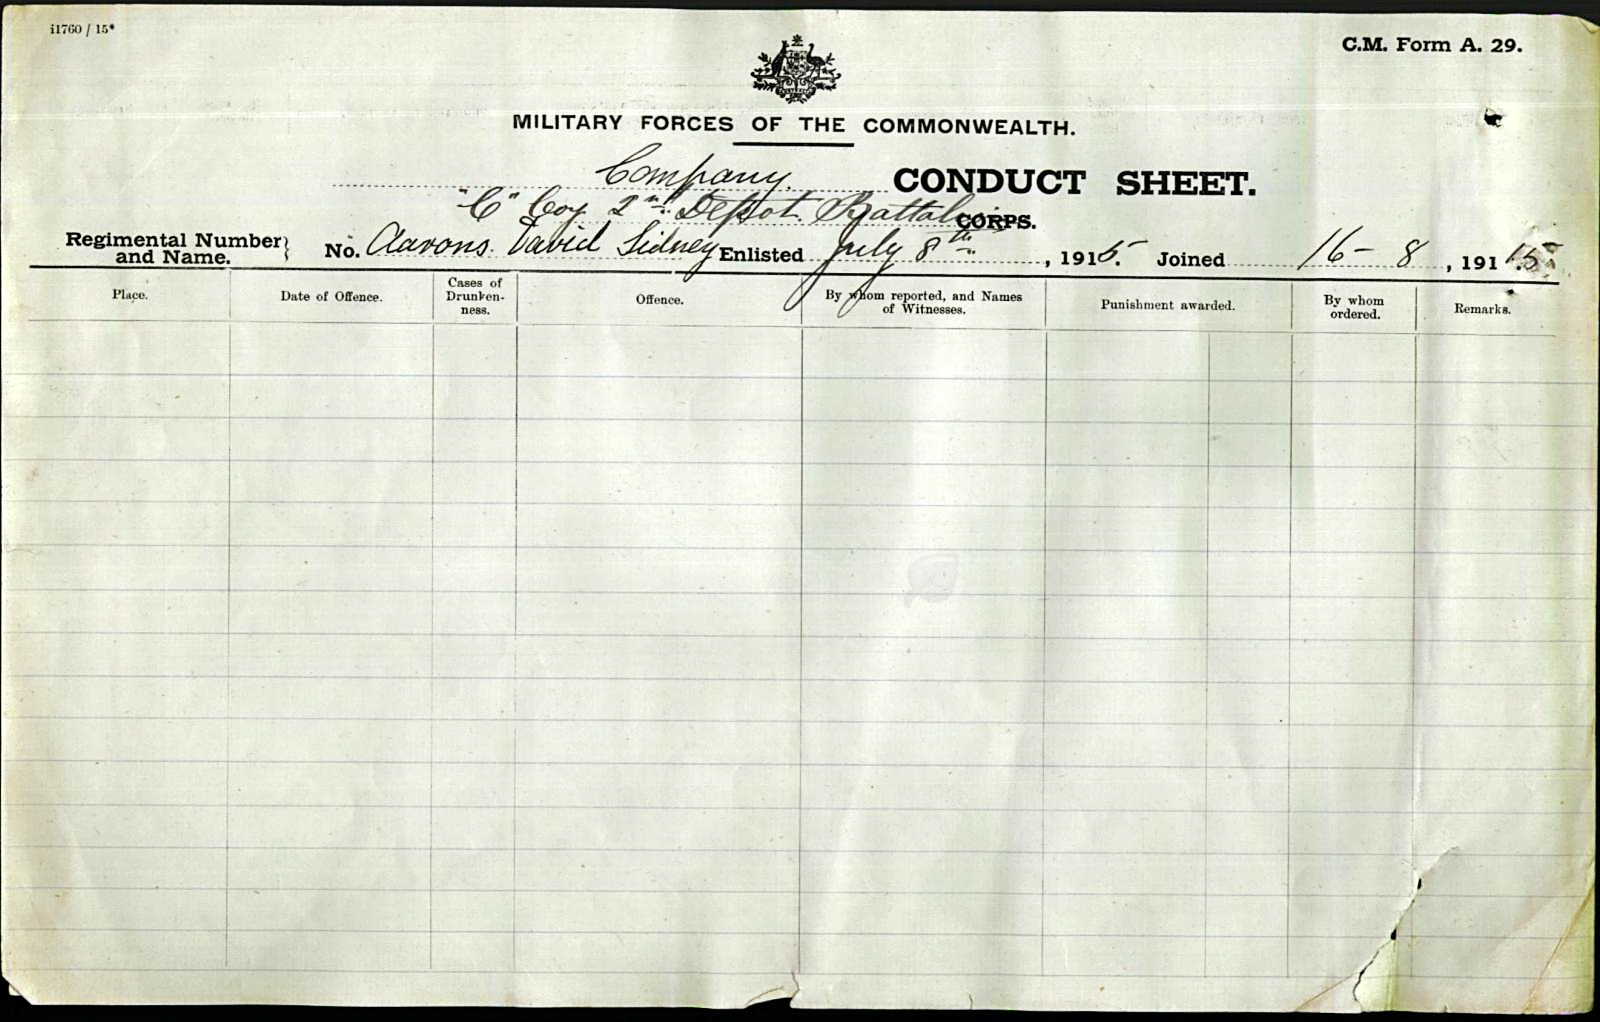 i1760 / 15*
C.M. Form A. 29.
MILITARY FORCES OF THE COMMONWEALTH.
Company. CONDUCT SHEET.
"C" Coy 2nd Depot Battalion CORPS.
Regimental Number and Name. } No. Aarons David Sidney Enlisted July 8th, 1915. Joined 16-8, 1915
Place. Date of Offence. Cases of Drunken-ness. Offence. By whom reported, and Names of Witnesses. Punishment awarded. By whom ordered. Remarks.